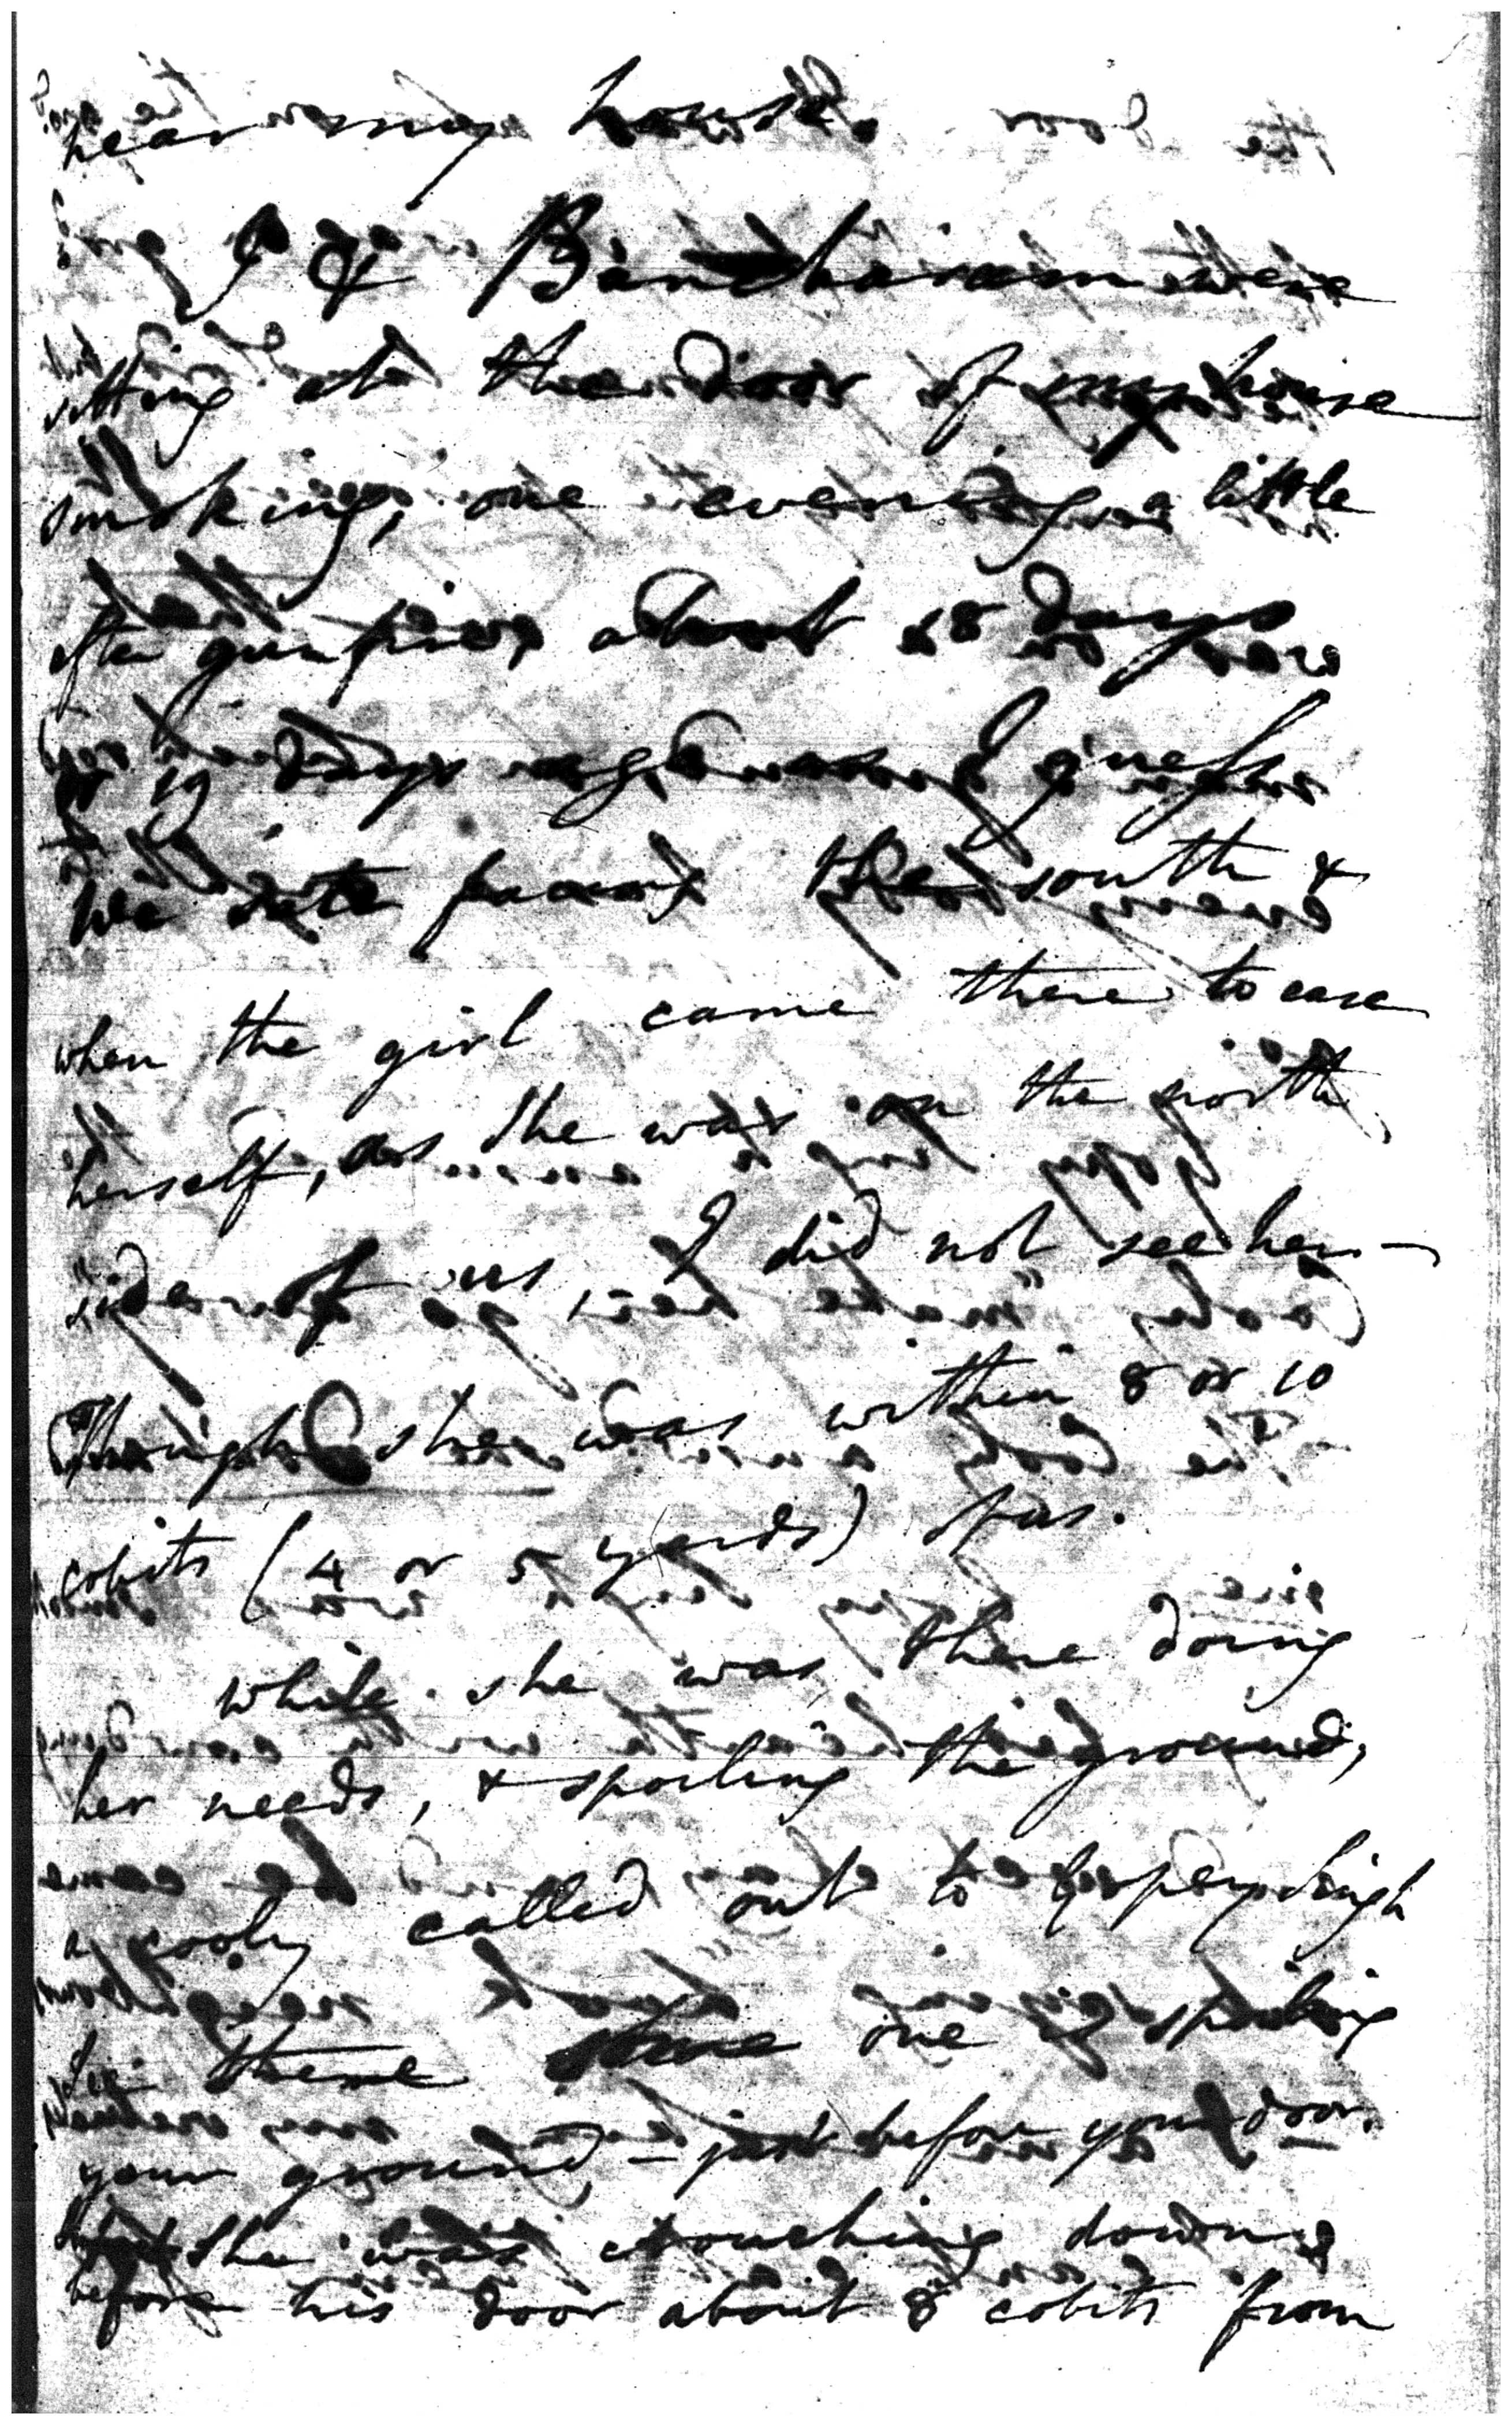 near my house.
I & Bancharam were
sitting at the door of my house
smoking, one evening a little
after gun fire, about 18 days
or 19 days ago I guess
We sate facing the south &
when the girl came there to ease
herself, as she was on the north
side of us I did not see her —
Though she was within 8 or 10
cobits (4 or 5 yards) of us.
while she was there doing
her needs, & spoiling the ground,
a cooly called out to Singh
there some one spoiling
your ground — just before your door.
she was crouching down
before his door about 8 cobits from